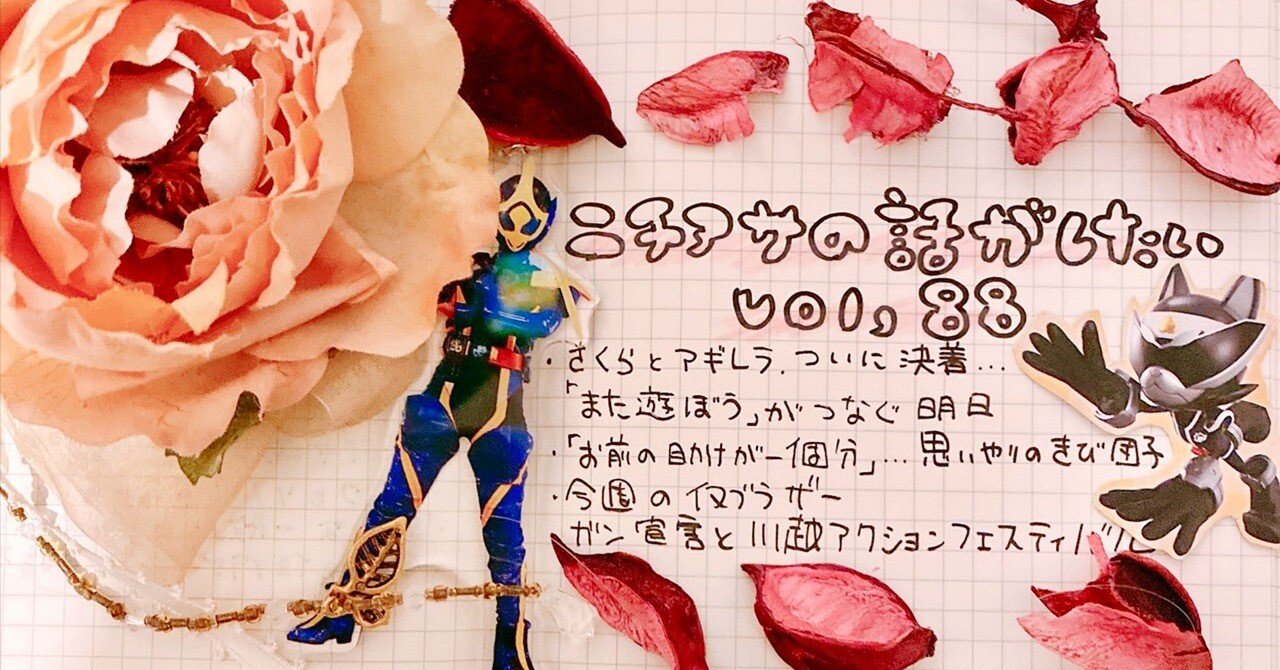 ニチアサの話がしたい
vol,88
・さくらとアギレラ.ついに決着...
「また遊ぼう」がつなぐ明日
・「お前の助けが一個分」...思いやりのきび団子
・今週の
ガン宣言と川越アクションフェスティバル